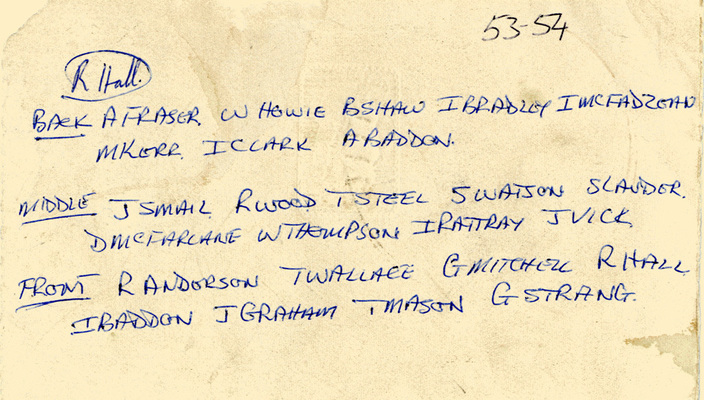 53-54
R Hall.
BACK A FRASER W HOWIE B SHAW I BRADLEY I MCFADZEAN
M KERR. I CLARK A BADDON.
MIDDLE J SMAIL R WOOD T STEEL S WATSON S LAUDER.
D MCFARLANE W THOMPSON I RATTRAY J VICK
FRONT R ANDORSON T WALLACE G MITCHELL R HALL
I BADDON J GRAHAM T MASON G STRANG.